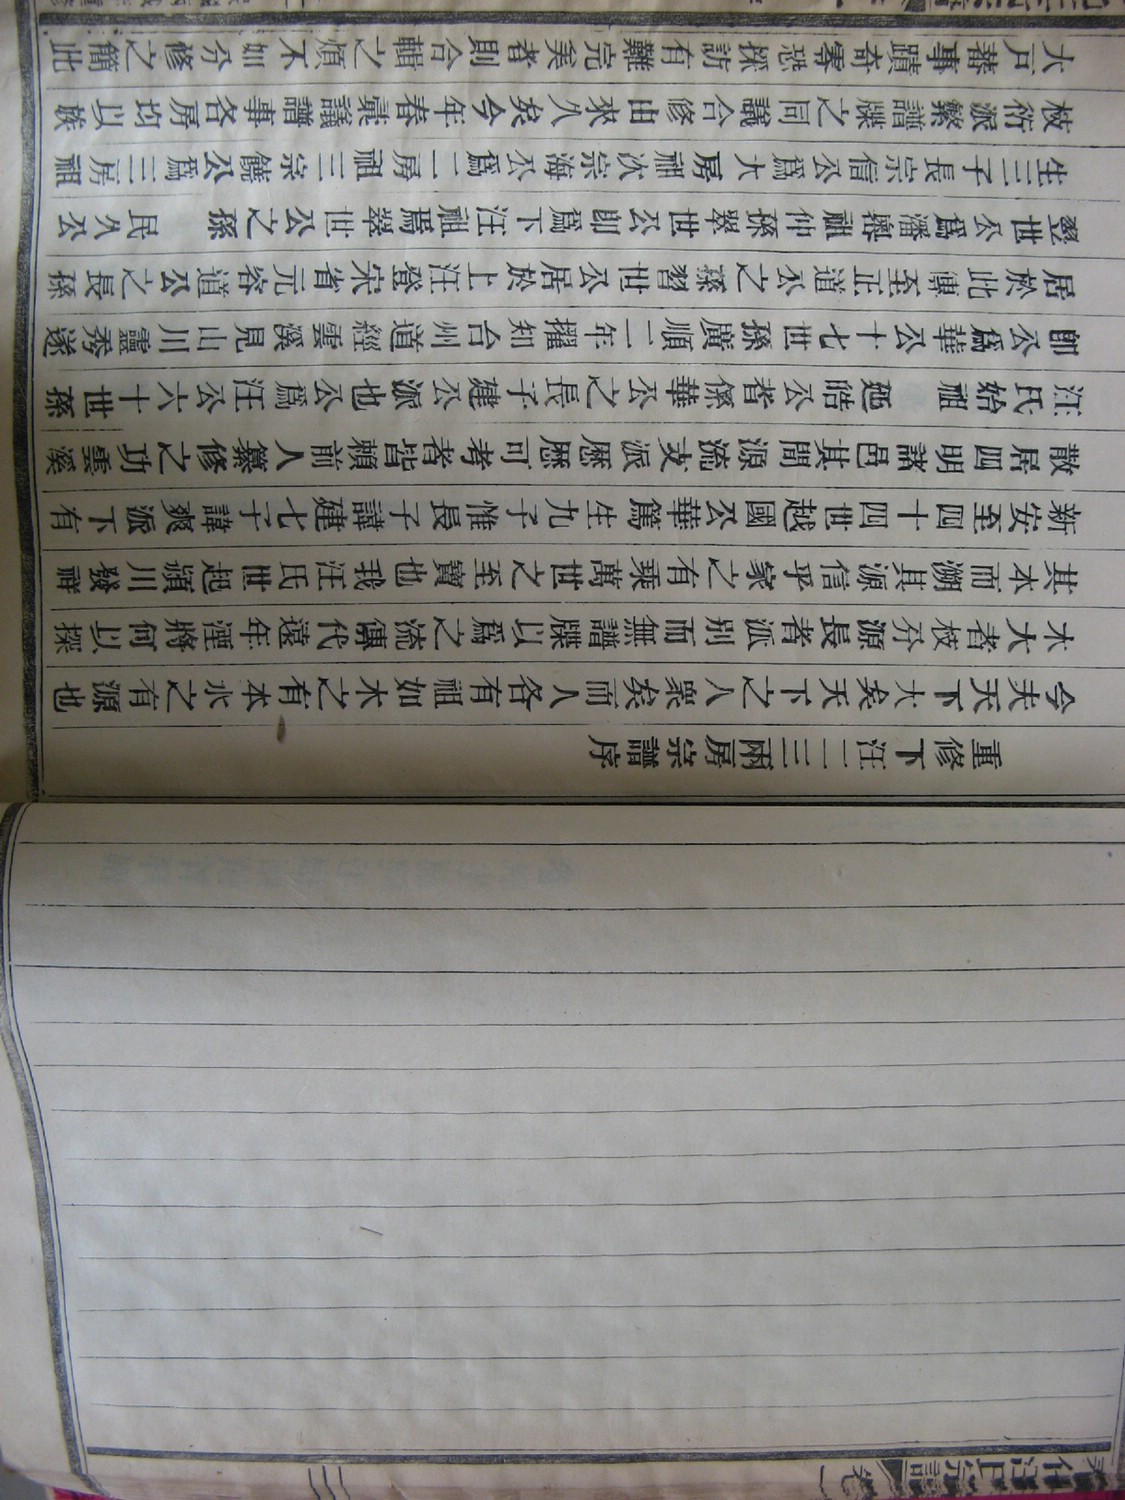 重修下汪一三兩房宗譜序
今夫天下大矣天下之人眾矣而人各有祖如木之有本水之有源也
木大者枝分源長者派別而無譜牒以爲之流傳代遠年湮將何以探
其本而溯其源乎信家之有乘萬世之至寶也我汪氏世起潁川發祥
新安至四十四世越國公華篤生九子惟長子諱建七子諱爽派下有
散居四明諸邑其間源流支派歷歷可考者皆賴前人纂修之功雲溪
汪氏始祖 廼皓公者係華公之長子建公派也公爲汪公六十世孫
卽公爲華公十七世孫廣順二年擢知台州道經雲溪見山川靈秀遂
居於此傳至正道公之孫習世公居於上汪登宋省元容道公之長孫
翌世公爲潘奧祖仲孫翠世公卽爲下汪祖焉翠世公之孫 民久公
生三子長宗信公爲大房祖次宗海公爲二房祖三宗饒公爲三房祖
枝衍派繁譜牒之同議合修由來久矣今年春彙議譜事各房均以族
大戶蕃事蹟奇零恐採訪有難完美者則合輯之煩不如分修之簡此